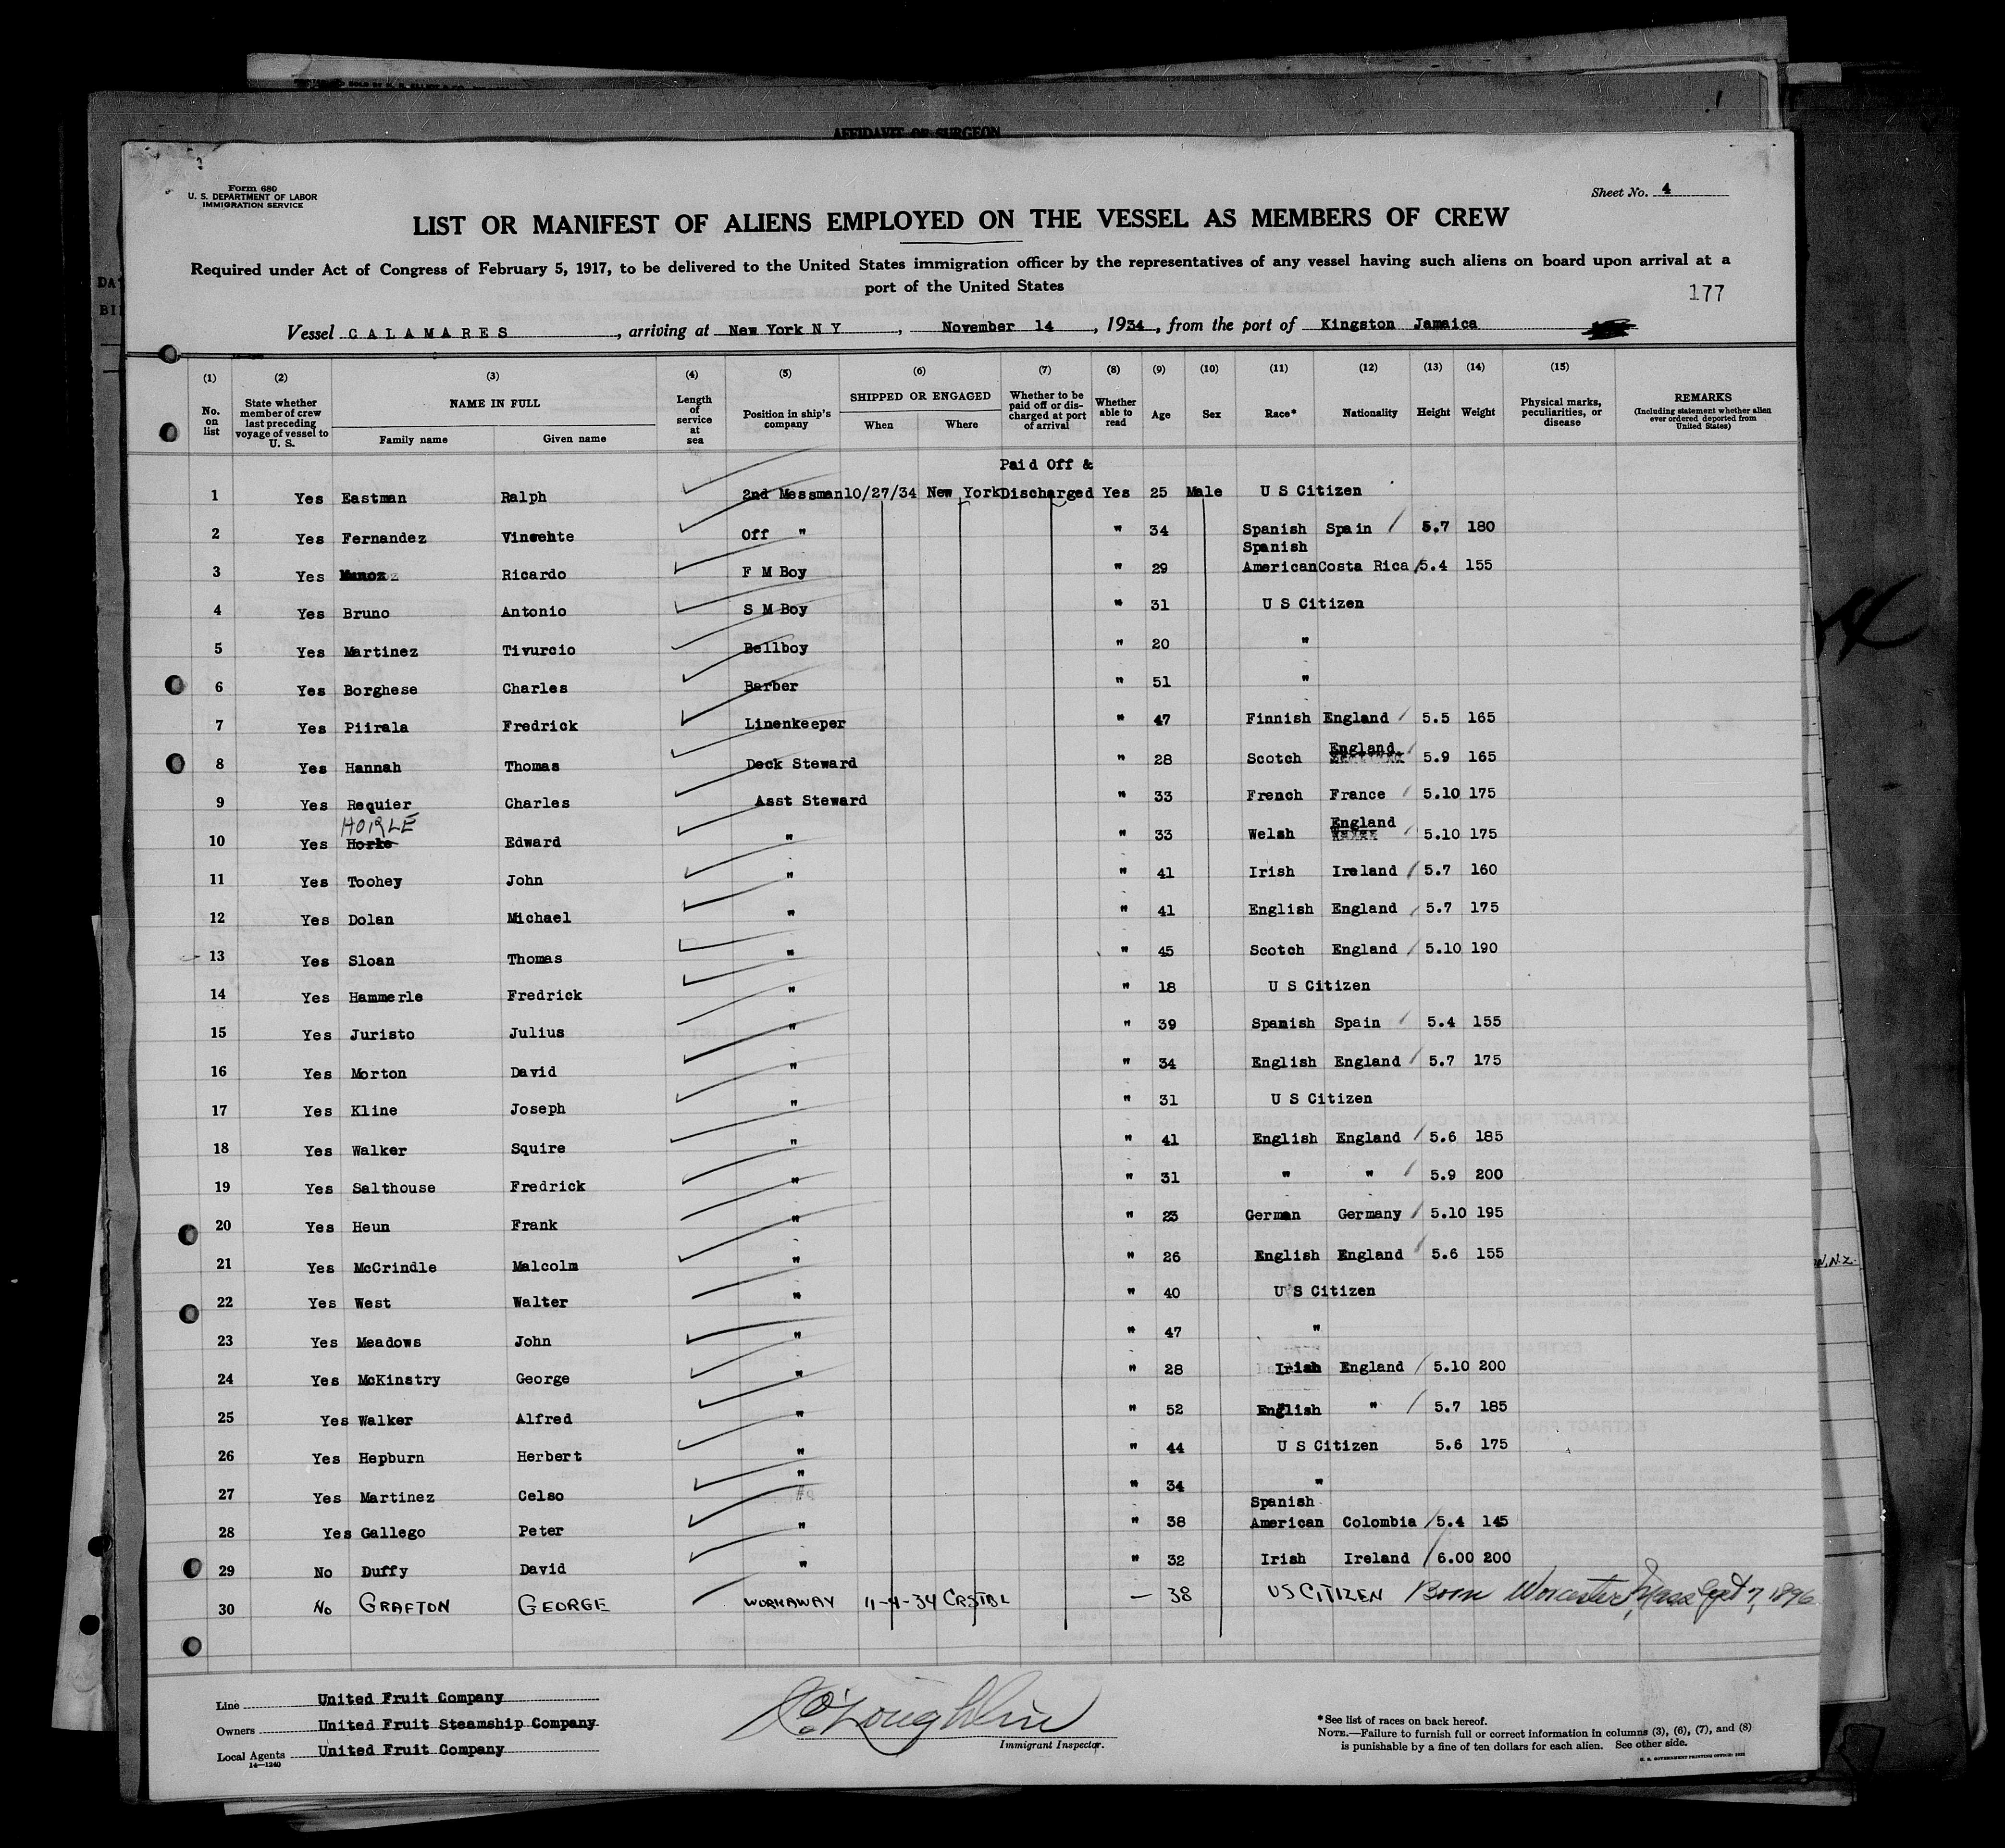 AFFIDAVIT OF SURGEON
Form 680
U. S. DEPARTMENT OF LABOR
IMMIGRATION SERVICE
Sheet No. 4
LIST OR MANIFEST OF ALIENS EMPLOYED ON THE VESSEL AS MEMBERS OF CREW
Required under Act of Congress of February 5, 1917, to be delivered to the United States immigration officer by the representatives of any vessel having such aliens on board upon arrival at a
port of the United States
177
Vessel CALAMARES, arriving at New York N Y, November 14, 1934, from the port of Kingston Jamaica
(1) No. on list
(2) State whether member of crew last preceding voyage of vessel to U. S.
(3) NAME IN FULL Family name Given name
(4) Length of service at sea
(5) Position in ship's company
(6) SHIPPED OR ENGAGED When Where
(7) Whether to be paid off or discharged at port of arrival
(8) Whether able to read
(9) Age
(10) Sex
(11) Race*
(12) Nationality
(13) Height
(14) Weight
(15) Physical marks, peculiarities, or disease
REMARKS (Including statement whether alien ever ordered deported from United States)
Paid Off &
1 Yes Eastman Ralph 2nd Messman 10/27/34 New York Discharged Yes 25 Male U S Citizen
2 Yes Fernandez Vincente Off " " 34 Spanish Spain 5.7 180
Spanish
3 Yes Ricardo F M Boy " 29 American Costa Rica 5.4 155
4 Yes Bruno Antonio S M Boy " 31 U S Citizen
5 Yes Martinez Tivurcio Bellboy " 20 "
6 Yes Borghese Charles Barber " 51 "
7 Yes Piirala Fredrick Linenkeeper " 47 Finnish England 5.5 165
8 Yes Hannah Thomas Deck Steward " 28 Scotch England 5.9 165
9 Yes Requier Charles Asst Steward " 33 French France 5.10 175
HORLE
10 Yes Horke Edward " " 33 Welsh England 5.10 175
11 Yes Toohey John " " 41 Irish Ireland 5.7 160
12 Yes Dolan Michael " " 41 English England 5.7 175
13 Yes Sloan Thomas " " 45 Scotch England 5.10 190
14 Yes Hammerle Fredrick " " 18 U S Citizen
15 Yes Juristo Julius " " 39 Spanish Spain 5.4 155
16 Yes Morton David " " 34 English England 5.7 175
17 Yes Kline Joseph " " 31 U S Citizen
18 Yes Walker Squire " " 41 English England 5.6 185
19 Yes Salthouse Fredrick " " 31 " " 5.9 200
20 Yes Heun Frank " " 23 German Germany 5.10 195
21 Yes McCrindle Malcolm " " 26 English England 5.6 155
22 Yes West Walter " " 40 U S Citizen
23 Yes Meadows John " " 47 "
24 Yes McKinstry George " " 28 Irish England 5.10 200
25 Yes Walker Alfred " " 52 English " 5.7 185
26 Yes Hepburn Herbert " " 44 U S Citizen 5.6 175
27 Yes Martinez Celso " " 34 "
Spanish
28 Yes Gallego Peter " " 38 American Colombia 5.4 145
29 No Duffy David " " 32 Irish Ireland 6.00 200
30 No GRAFTON GEORGE WORKAWAY 11-4-34 CRSTBL — 38 US CITIZEN Born Worcester, Mass Sept 7, 1896
Line United Fruit Company
Owners United Fruit Steamship Company
Local Agents United Fruit Company
14—1240
Immigrant Inspector.
*See list of races on back hereof.
NOTE.—Failure to furnish full or correct information in columns (3), (6), (7), and (8)
is punishable by a fine of ten dollars for each alien. See other side.